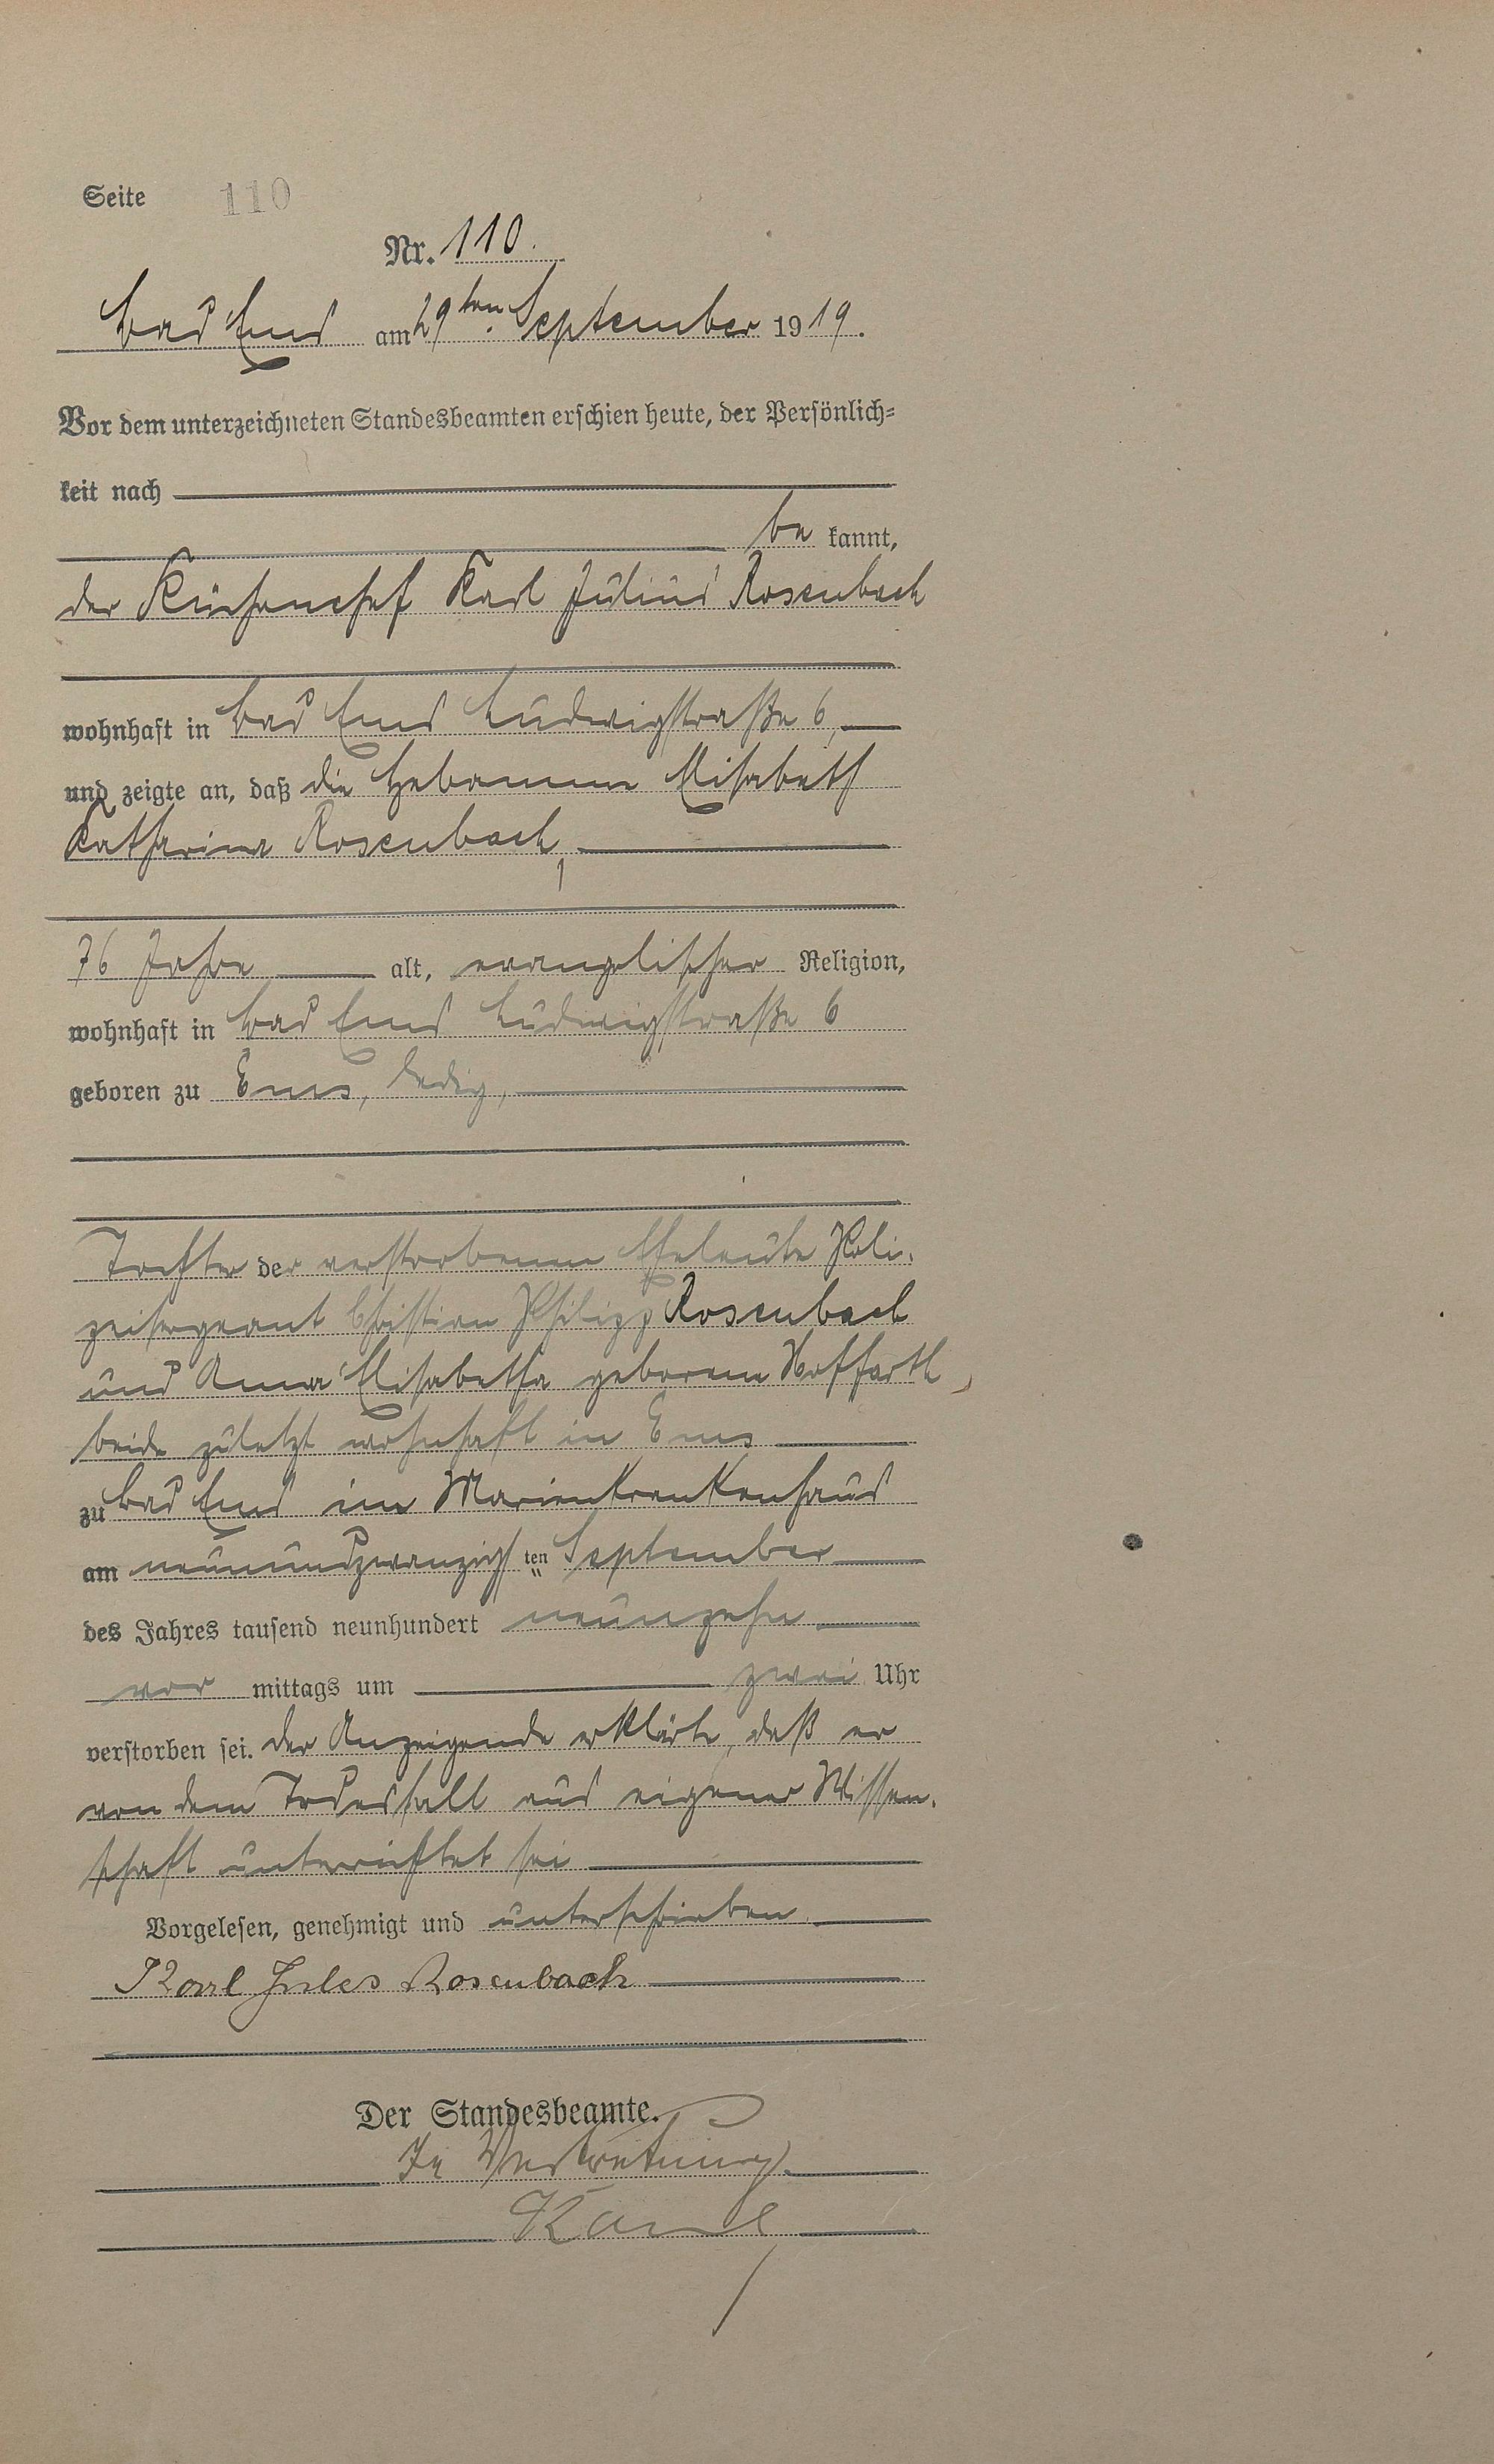 Seite 110
Nr. 110.
Bad Ems am 29ten September 1919.
Vor dem unterzeichneten Standesbeamten erschien heute, der Persönlich-
keit nach
be kannt,
der Küchenchef Karl Julius Rosenbach
wohnhaft in Bad Ems Ludwigstraße 6,
und zeigte an, daß die Hebamme Elisabeth
Katharina Rosenbach,
76 Jahre alt, evangelischer Religion,
wohnhaft in Bad Ems Ludwigstraße 6
geboren zu Ems, ledig,
Tochter der verstorbenen Eheleute Poli-
zeisergeant Christian Philipp Rosenbach
und Anna Elisabetha geborene Hoffarth,
beide zuletzt wohnhaft in Ems
zu Bad Ems im Marienkrankenhaus
am neunundzwanzigsten September
des Jahres tausend neunhundert neunzehn
vor mittags um zwei Uhr
verstorben sei. Der Anzeigende erklärte, daß er
von dem Todesfall aus eigener Wissen-
schaft unterrichtet sei
Vorgelesen, genehmigt und unterschrieben.
Karl Jules Rosenbach
Der Standesbeamte.
In Vertretung